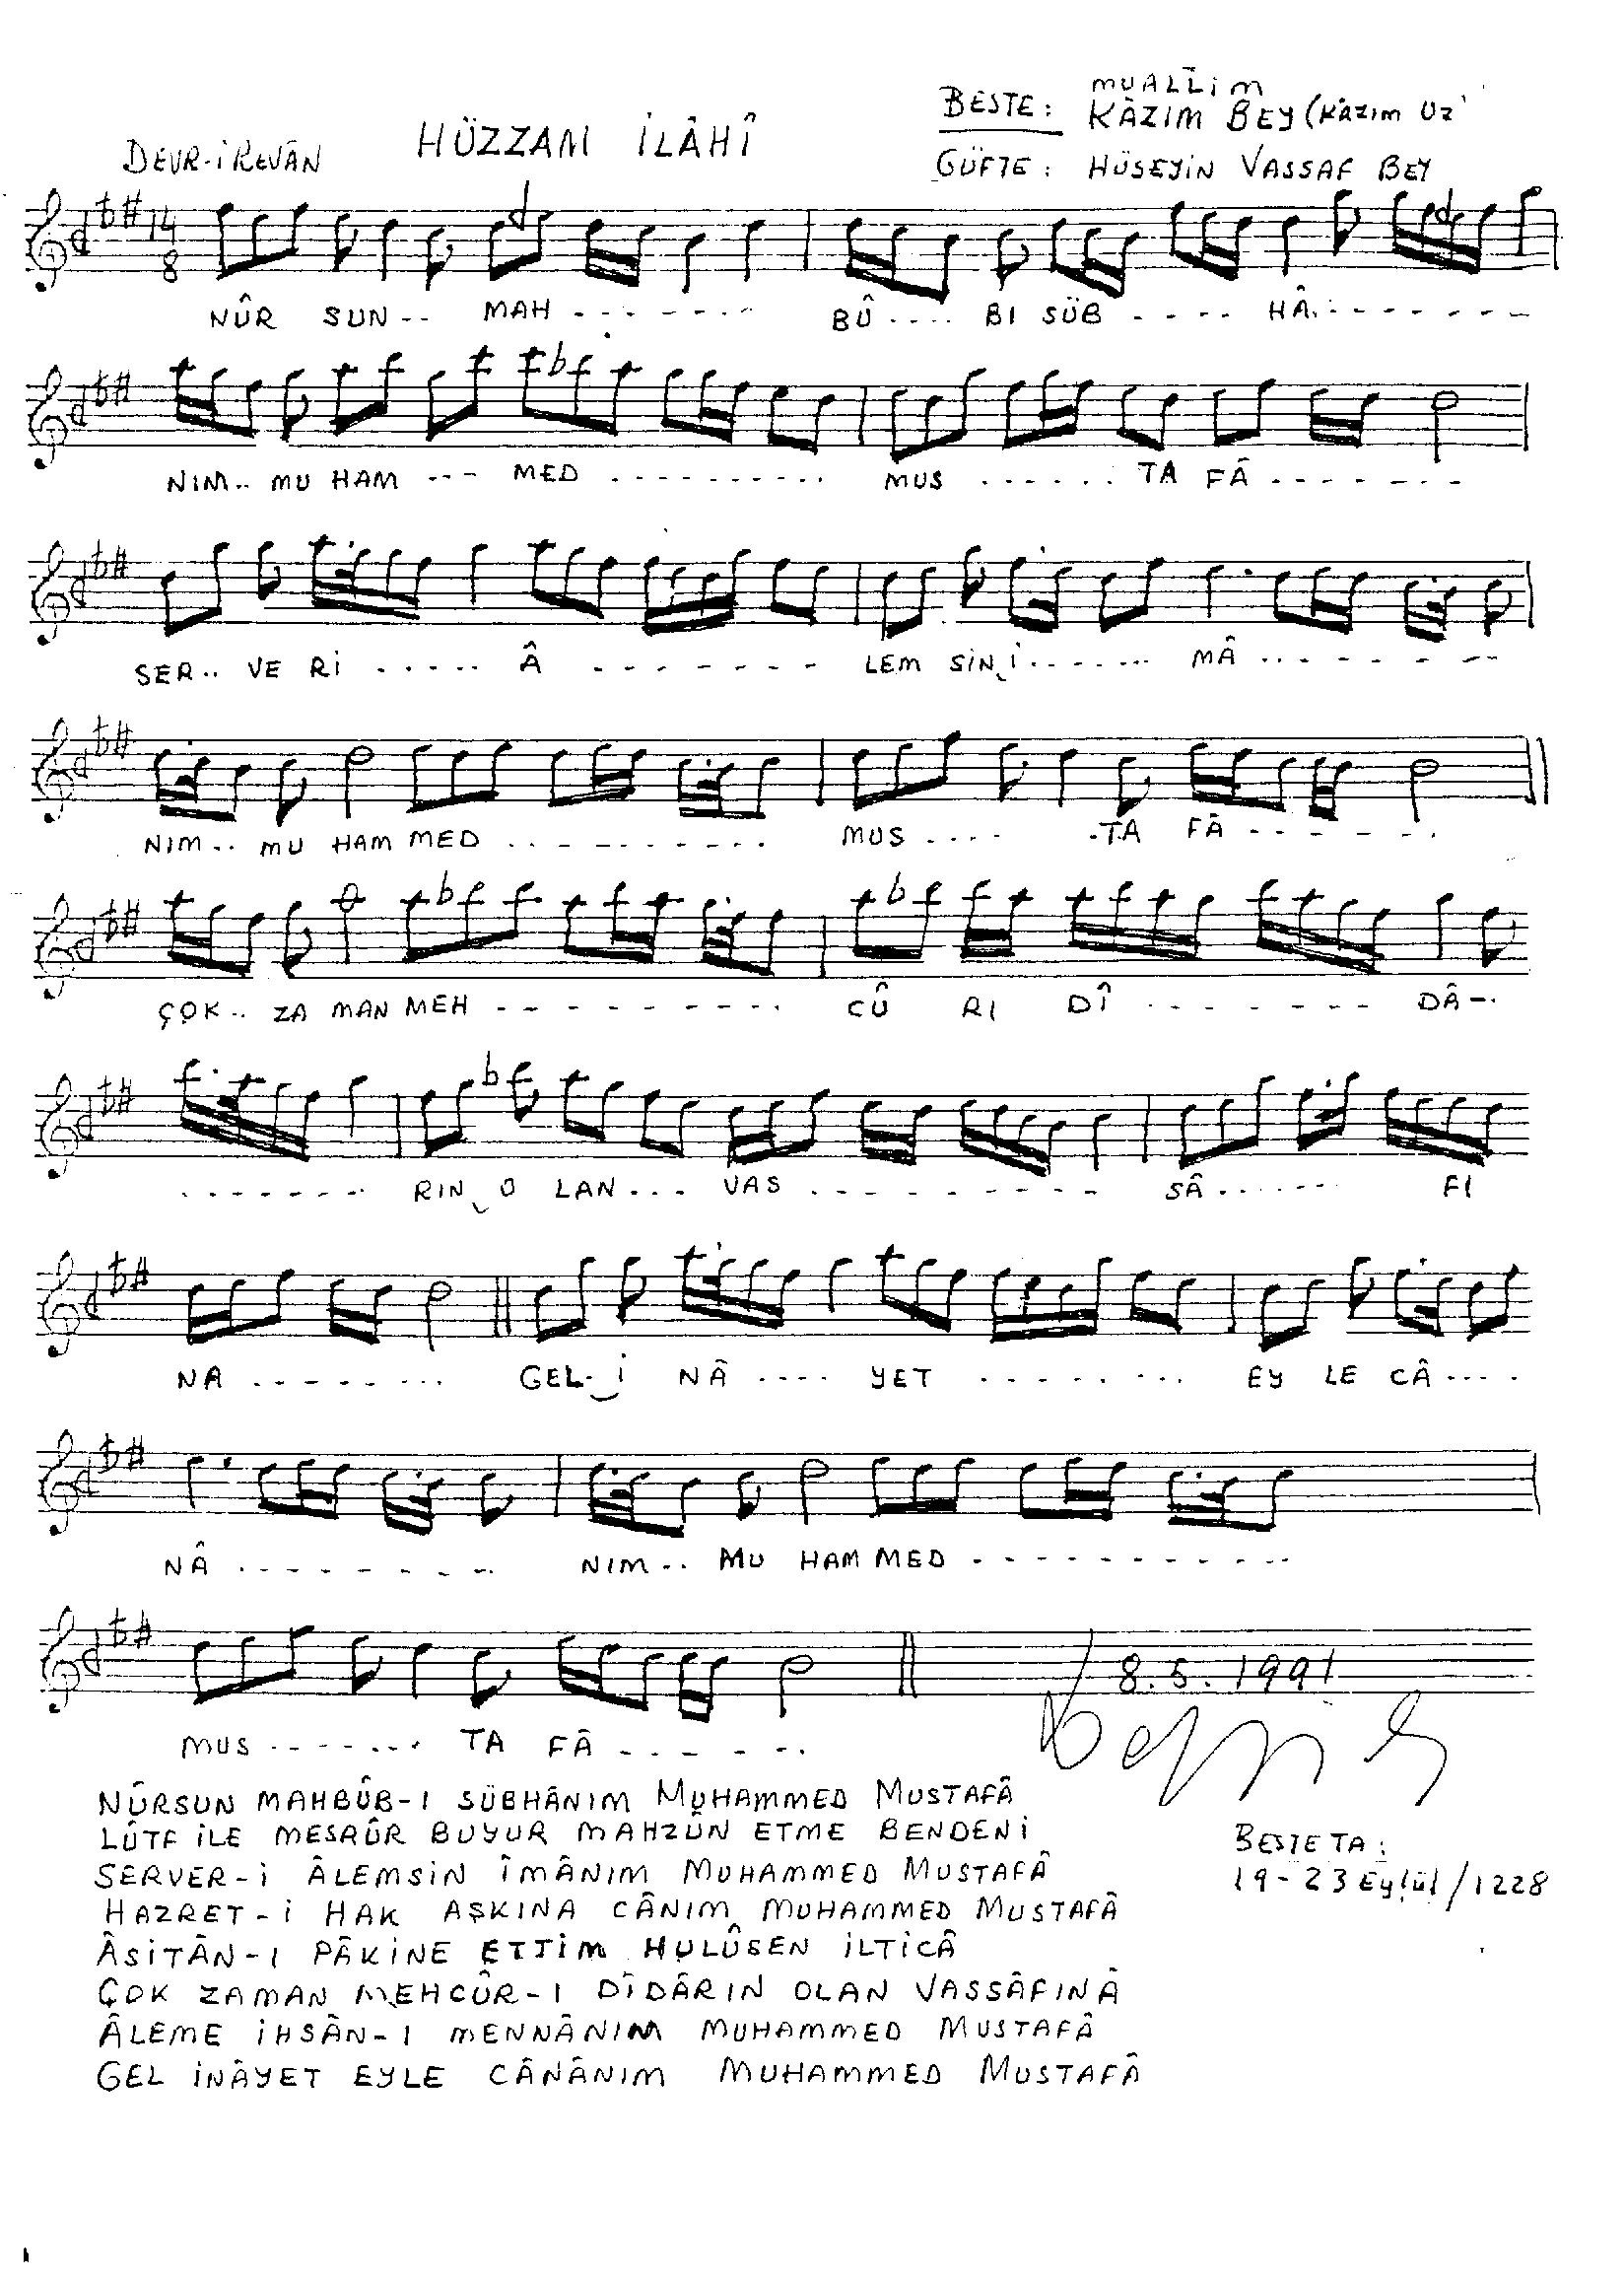 MUALLİM
BESTE: KÂZIM BEY (KÂZIM UZ
DEVR-İ REVÂN HÜZZAM İLÂHÎ
GÜFTE: HÜSEYİN VASSAF BEY
14
8
NÛR SUN-- MAH -------- BÛ---- BI SÜB ----- HÂ---------
NIM-- MU HAM --- MED ----------- MUS ------ TA FÂ -------
SER-- VE RI ------ Â -------- LEM SİN İ------- MÂ -------
NIM-- MU HAM MED ---------- MUS ---- -TA FÂ ------
ÇOK-- ZA MAN MEH --------- CÛ RI DÎ -------- DÂ--
-------- RIN O LAN---- VAS --------- SÂ------- FI
NA -------- GEL- İ NÂ ---- YET -------- EY LE CÂ----
NÂ -------- NIM-- MU HAM MED -----------
MUS ------- TA FÂ ------
8.5.1991
NÛRSUN MAHBÛB-I SÜBHÂNIM MUHAMMED MUSTAFÂ
LÛTF İLE MESRÛR BUYUR MAHZÛN ETME BENDENİ
SERVER-İ ÂLEMSİN ÎMÂNIM MUHAMMED MUSTAFÂ
HAZRET-İ HAK AŞKINA CÂNIM MUHAMMED MUSTAFÂ
ÂSİTÂN-I PÂKİNE ETTİM HULÛSEN İLTİCÂ
ÇOK ZAMAN MEHCÛR-I DÎDÂRIN OLAN VASSÂFINÂ
ÂLEME İHSÂN-I MENNÂNIM MUHAMMED MUSTAFÂ
GEL İNÂYET EYLE CÂNÂNIM MUHAMMED MUSTAFÂ
BESTE TA:
19-23 Eylül/1228